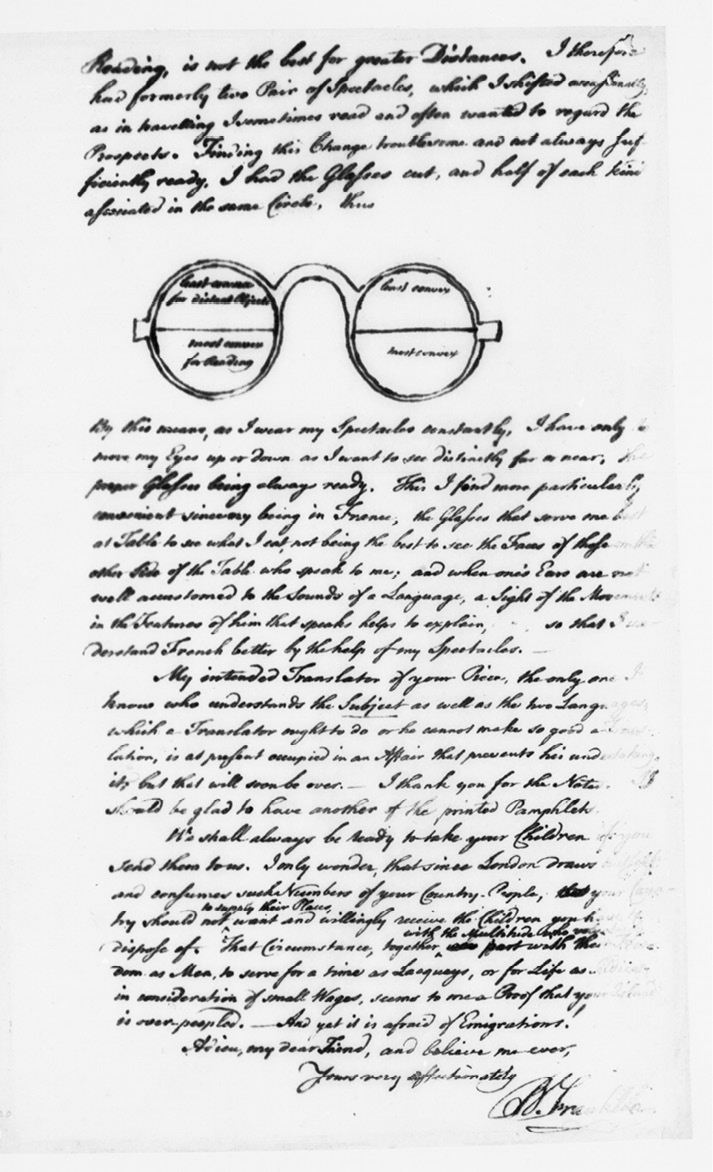 Reading, is not the best for greater Distances. I therefore
had formerly two Pair of Spectacles, which I shifted occasionally,
as in travelling I sometimes read and often wanted to regard the
Prospects. Finding this Change troublesome and not always suf-
ficiently ready, I had the Glasses cut, and half of each kind
associated in the same Circle, thus
least convex
for distant Objects
least convex
most convex
for Reading
most convex
By this means, as I wear my Spectacles constantly, I have only to
move my Eyes up or down as I want to see distinctly far or near, the
proper Glasses being always ready. This I find more particularly
convenient since my being in France, the Glasses that serve me best
at Table to see what I eat, not being the best to see the Faces of those on the
other Side of the Table who speak to me; and when one's Ears are not
well accustomed to the Sounds of a Language, a Sight of the Movements
in the Features of him that speaks helps to explain, so that I un-
derstand French better by the help of my Spectacles. —
My intended Translator of your Piece, the only one I
know who understands the Subject as well as the two Languages,
which a Translator ought to do or he cannot make so good a Trans-
lation, is at present occupied in an Affair that prevents his undertaking
it; but that will soon be over. — I thank you for the Notes. I
should be glad to have another of the printed Pamphlets.
We shall always be ready to take your Children if you
send them to us. I only wonder, that since London draws
and consumes such Numbers of your Country People, your Coun-
to supply their Places,
try should not want and willingly receive the Children you have to
with the Multitude who
dispose of. That Circumstance, together part with their Free-
dom as Men, to serve for a time as Lacquays, or for Life as Soldiers
in consideration of small Wages, seems to me a Proof that your Island
is over-peopled. — And yet it is afraid of Emigrations!
Adieu, my dear Friend, and believe me ever,
Yours very affectionately
B. Franklin